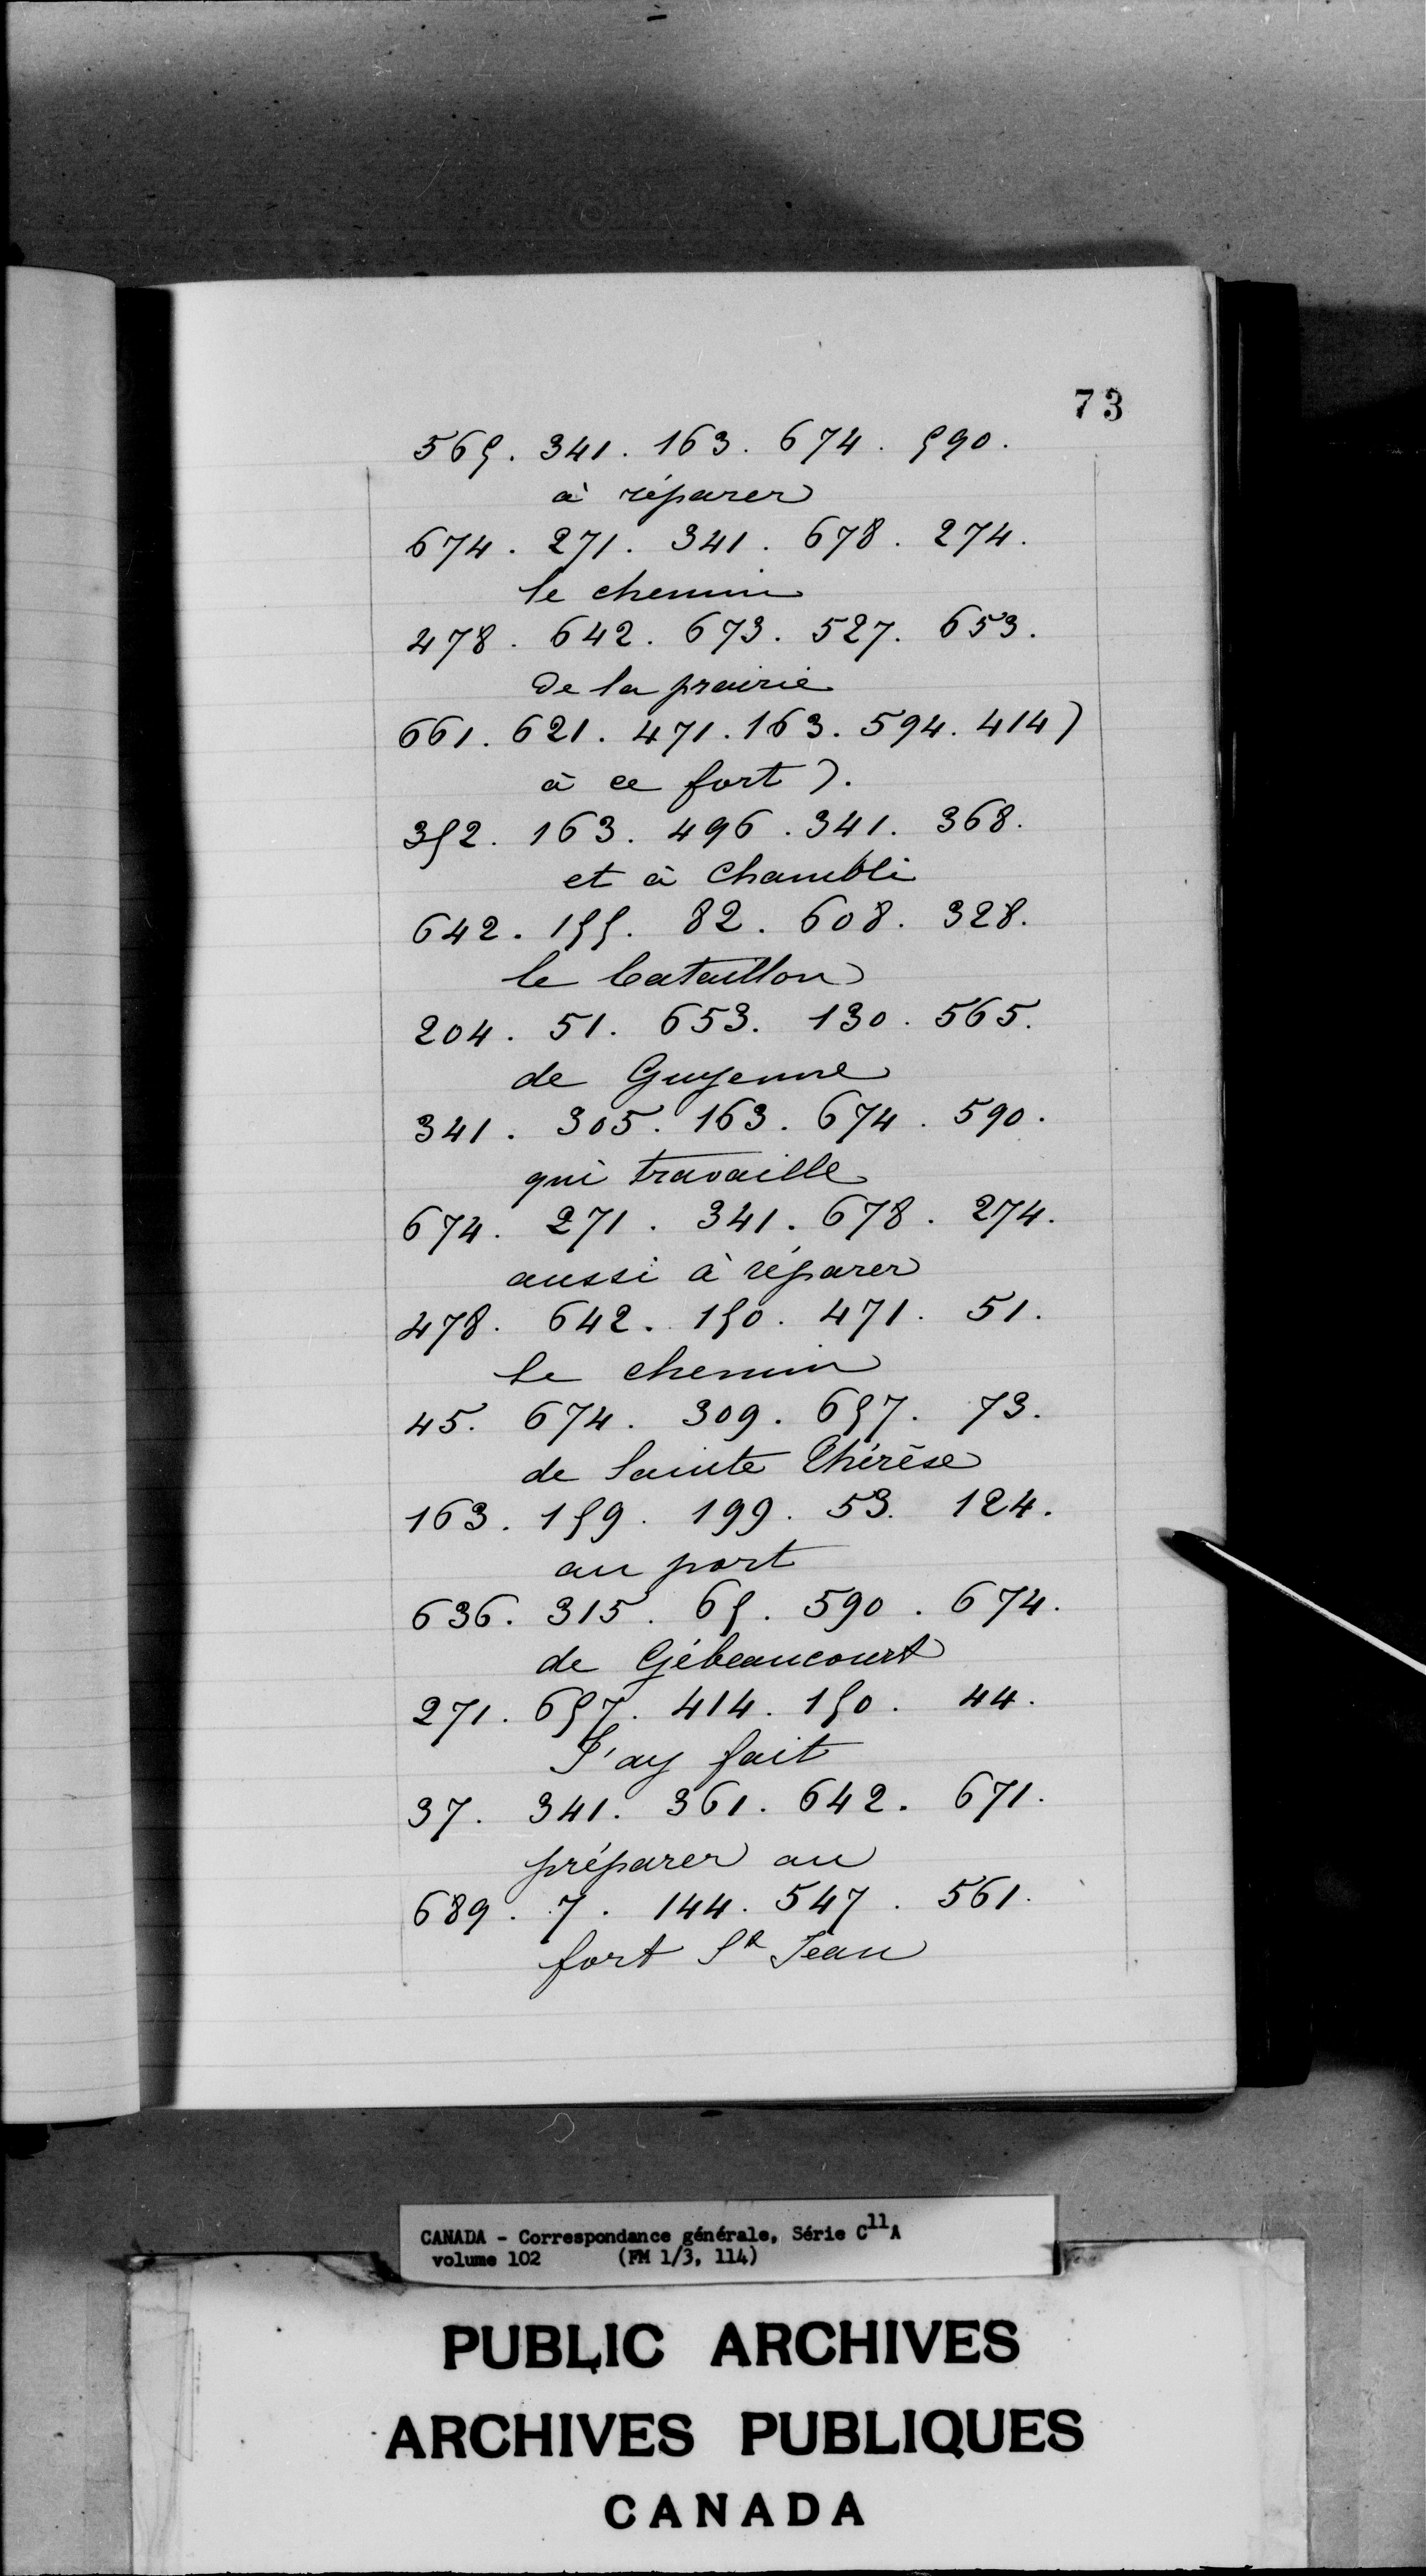 73
565. 341. 163. 674. 590.
à réparer
674. 271. 341. 678. 274.
le chemin
478. 642. 673. 527. 653.
de la prairie
661. 621. 471. 163. 594. 414)
à ce fort).
352. 163. 496. 341. 368.
et à Chambli
642. 155. 82. 608. 328.
le bataillon
204. 51. 653. 130. 565.
de Guyenne
341. 305. 163. 674. 590.
qui travaille
674. 271. 341. 678. 274.
aussi à réparer
478. 642. 150. 471. 51.
le chemin
45. 674. 309. 657. 73.
de Sainte Thérèse
163. 159. 199. 53. 124.
au port
636. 315. 65. 590. 674.
de Gébeaucourt
271. 657. 414. 150. 44.
J'ay fait
37. 341. 361. 642. 671.
préparer au
689. 7. 144. 547. 561.
fort St Jean
CANADA - Correspondance générale, Série C11A
volume 102 (FM 1/3, 114)
PUBLIC ARCHIVES
ARCHIVES PUBLIQUES
CANADA